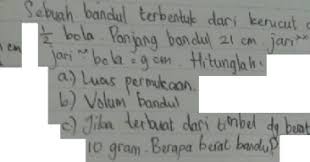 Sebuah bandul terbentuk dari kerucut d
½ bola. Panjang bandul 21 cm. jari"
cm jari" bola = 9 cm. Hitunglah.
a) Luas permukaan.
b) Volum bandul
c) Jika terbuat dari timbel dg berat
10 gram. Berapa berat bandul?